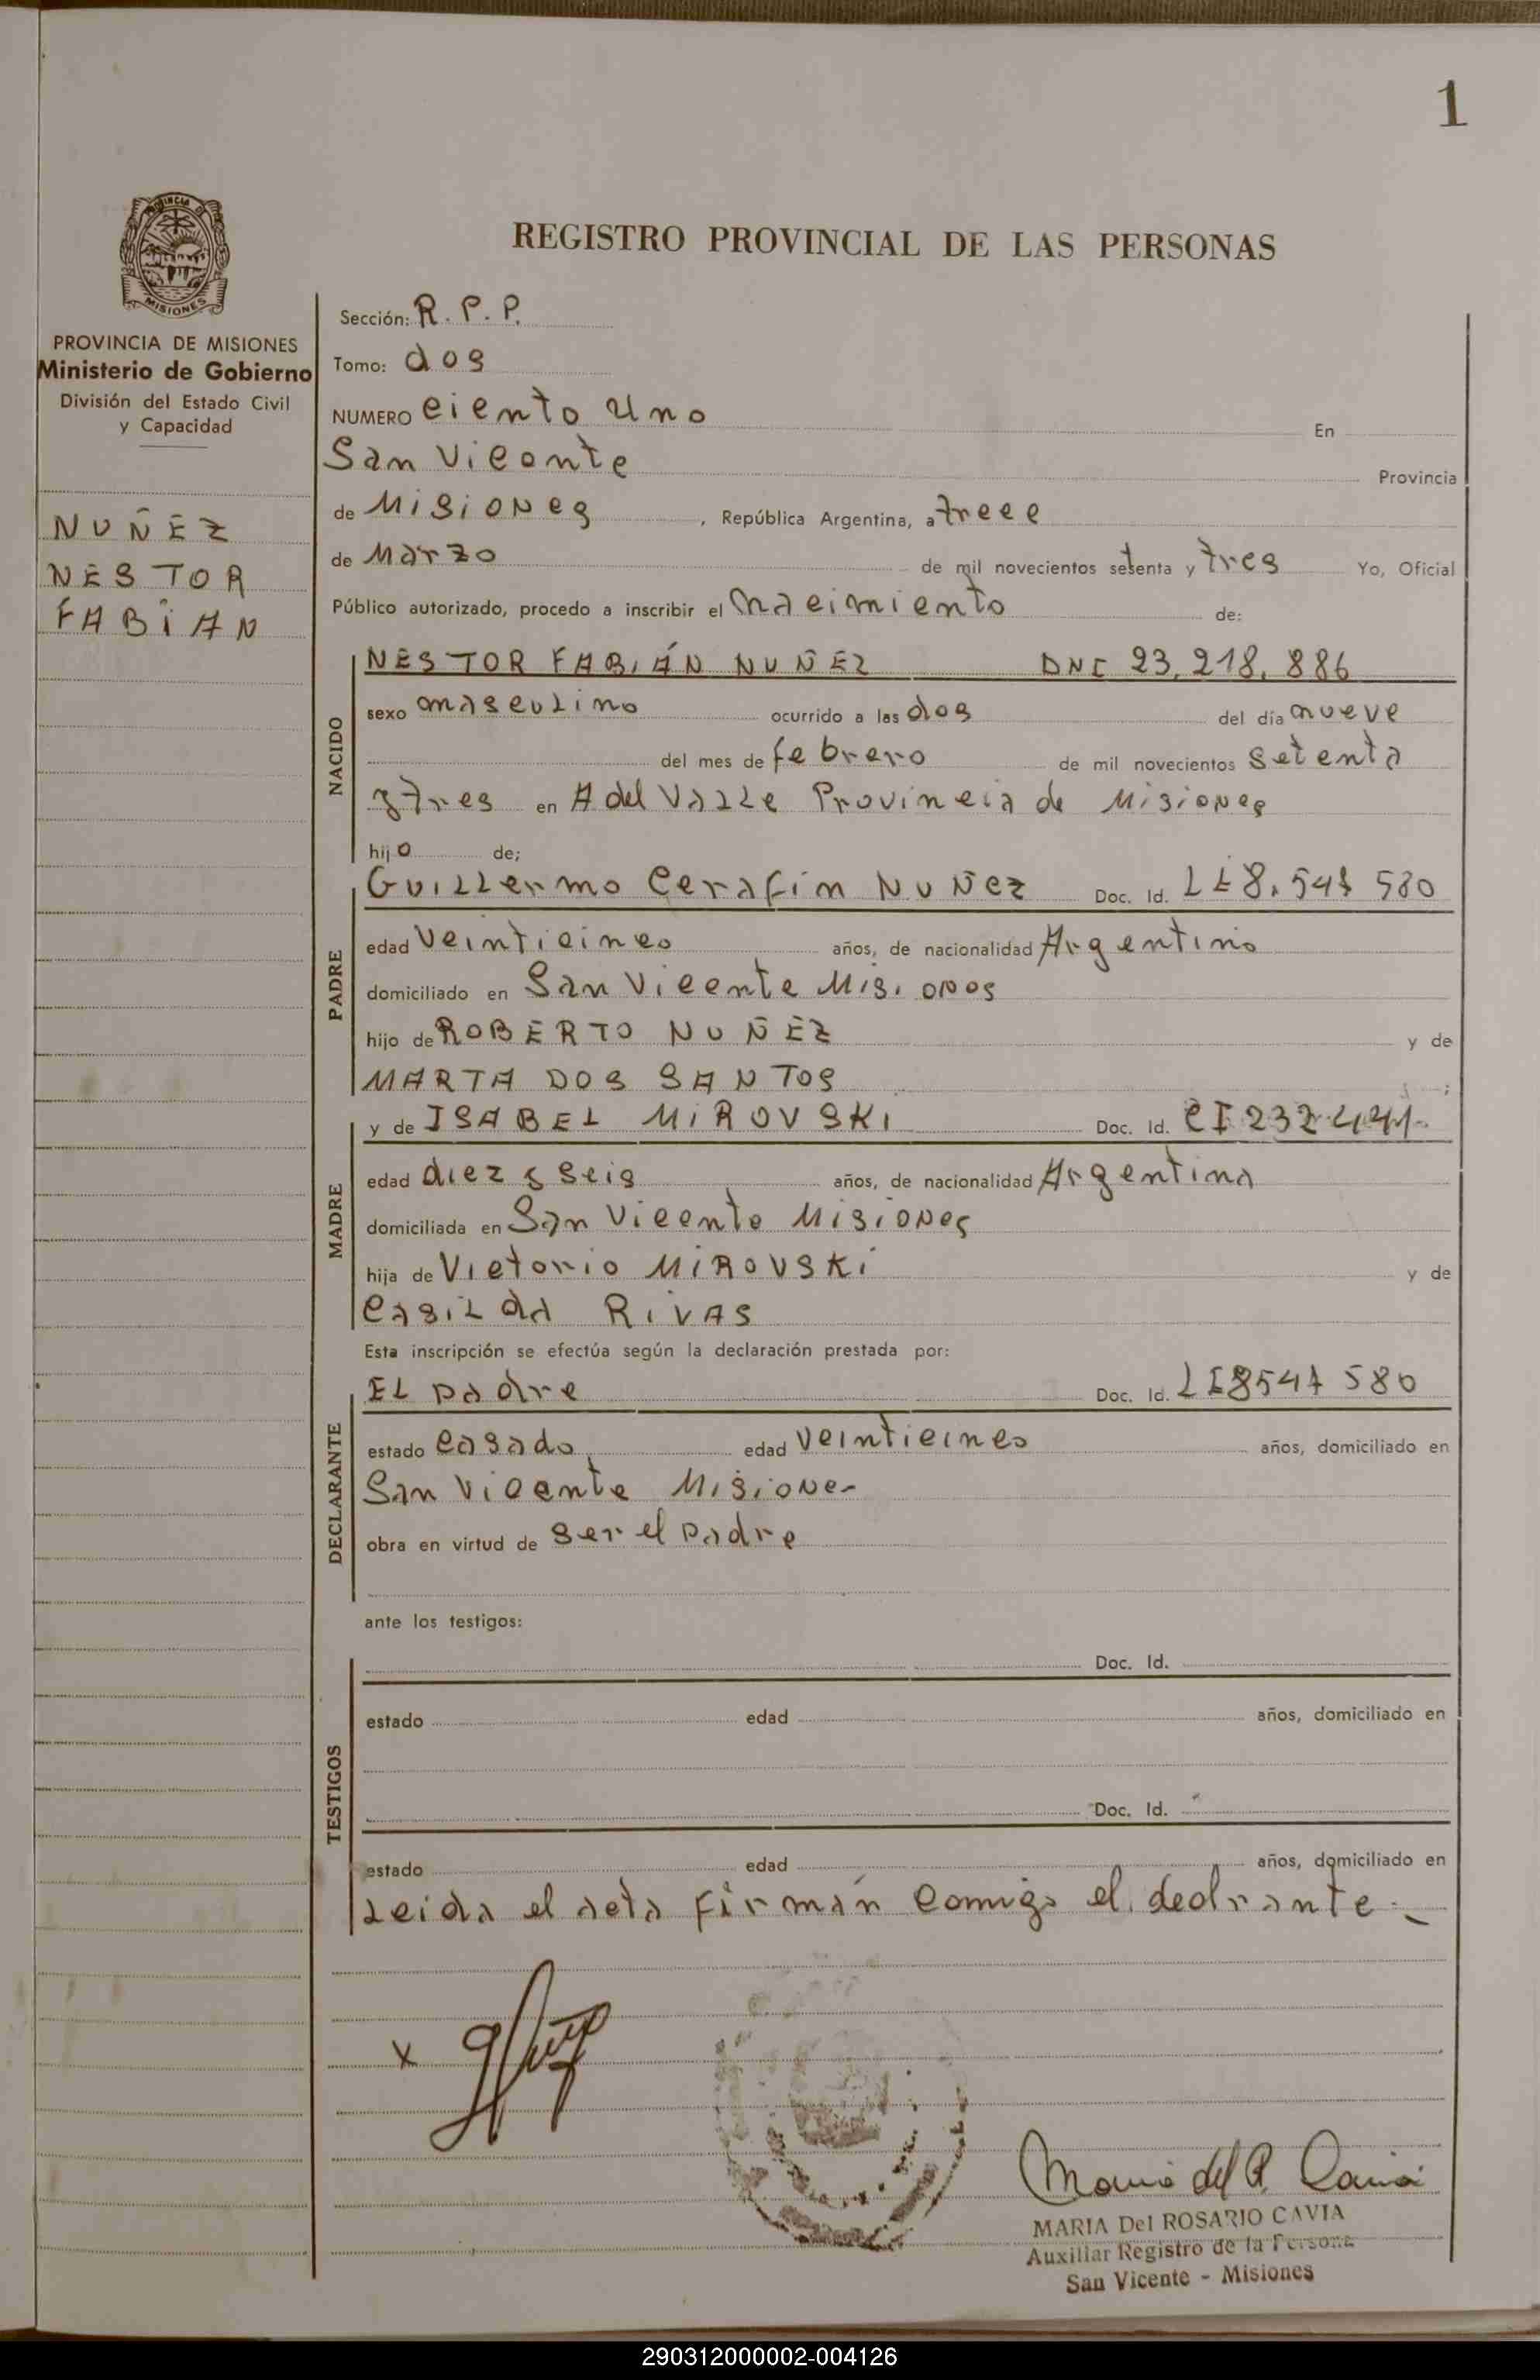 1
PROVINCIA DE
MISIONES
PROVINCIA DE MISIONES
Ministerio de Gobierno
División del Estado Civil
y Capacidad
NUÑEZ
NESTOR
FABIAN
REGISTRO PROVINCIAL DE LAS PERSONAS
Sección: R.P.P.
Tomo: dos
NUMERO ciento uno En
San Vicente Provincia
de Misiones, República Argentina, a trece
de Marzo de mil novecientos setenta y tres Yo, Oficial
Público autorizado, procedo a inscribir el nacimiento de:
NACIDO
NESTOR FABIÁN NUÑEZ DNI 23.218.886
sexo masculino ocurrido a las dos del día nueve
del mes de febrero de mil novecientos setenta
y tres en A del Valle Provincia de Misiones
hijo de;
PADRE
Guillermo Cerafin Nuñez Doc. Id. 580
edad veinticinco años, de nacionalidad Argentino
domiciliado en San Vicente Misiones
hijo de ROBERTO NUÑEZ y de
MARTA DOS SANTOS ;
MADRE
y de ISABEL MIROVSKI Doc. Id. CI 232.441.
edad diez y seis años, de nacionalidad Argentina
domiciliada en San Vicente Misiones
hija de Victorio MIROVSKI y de
Casilda RIVAS
Esta inscripción se efectúa según la declaración prestada por:
DECLARANTE
EL padre Doc. Id. 580
estado casado edad veinticinco años, domiciliado en
San Vicente Misiones
obra en virtud de ser el padre
ante los testigos:
TESTIGOS
Doc. Id.
estado edad años, domiciliado en
Doc. Id.
estado edad años, domiciliado en
Leida el acta firmán comigo el declrante.-
x
Maria del R. Cavia
MARIA Del ROSARIO CAVIA
Auxiliar Registro de la Persona
San Vicente - Misiones
290312000002-004126